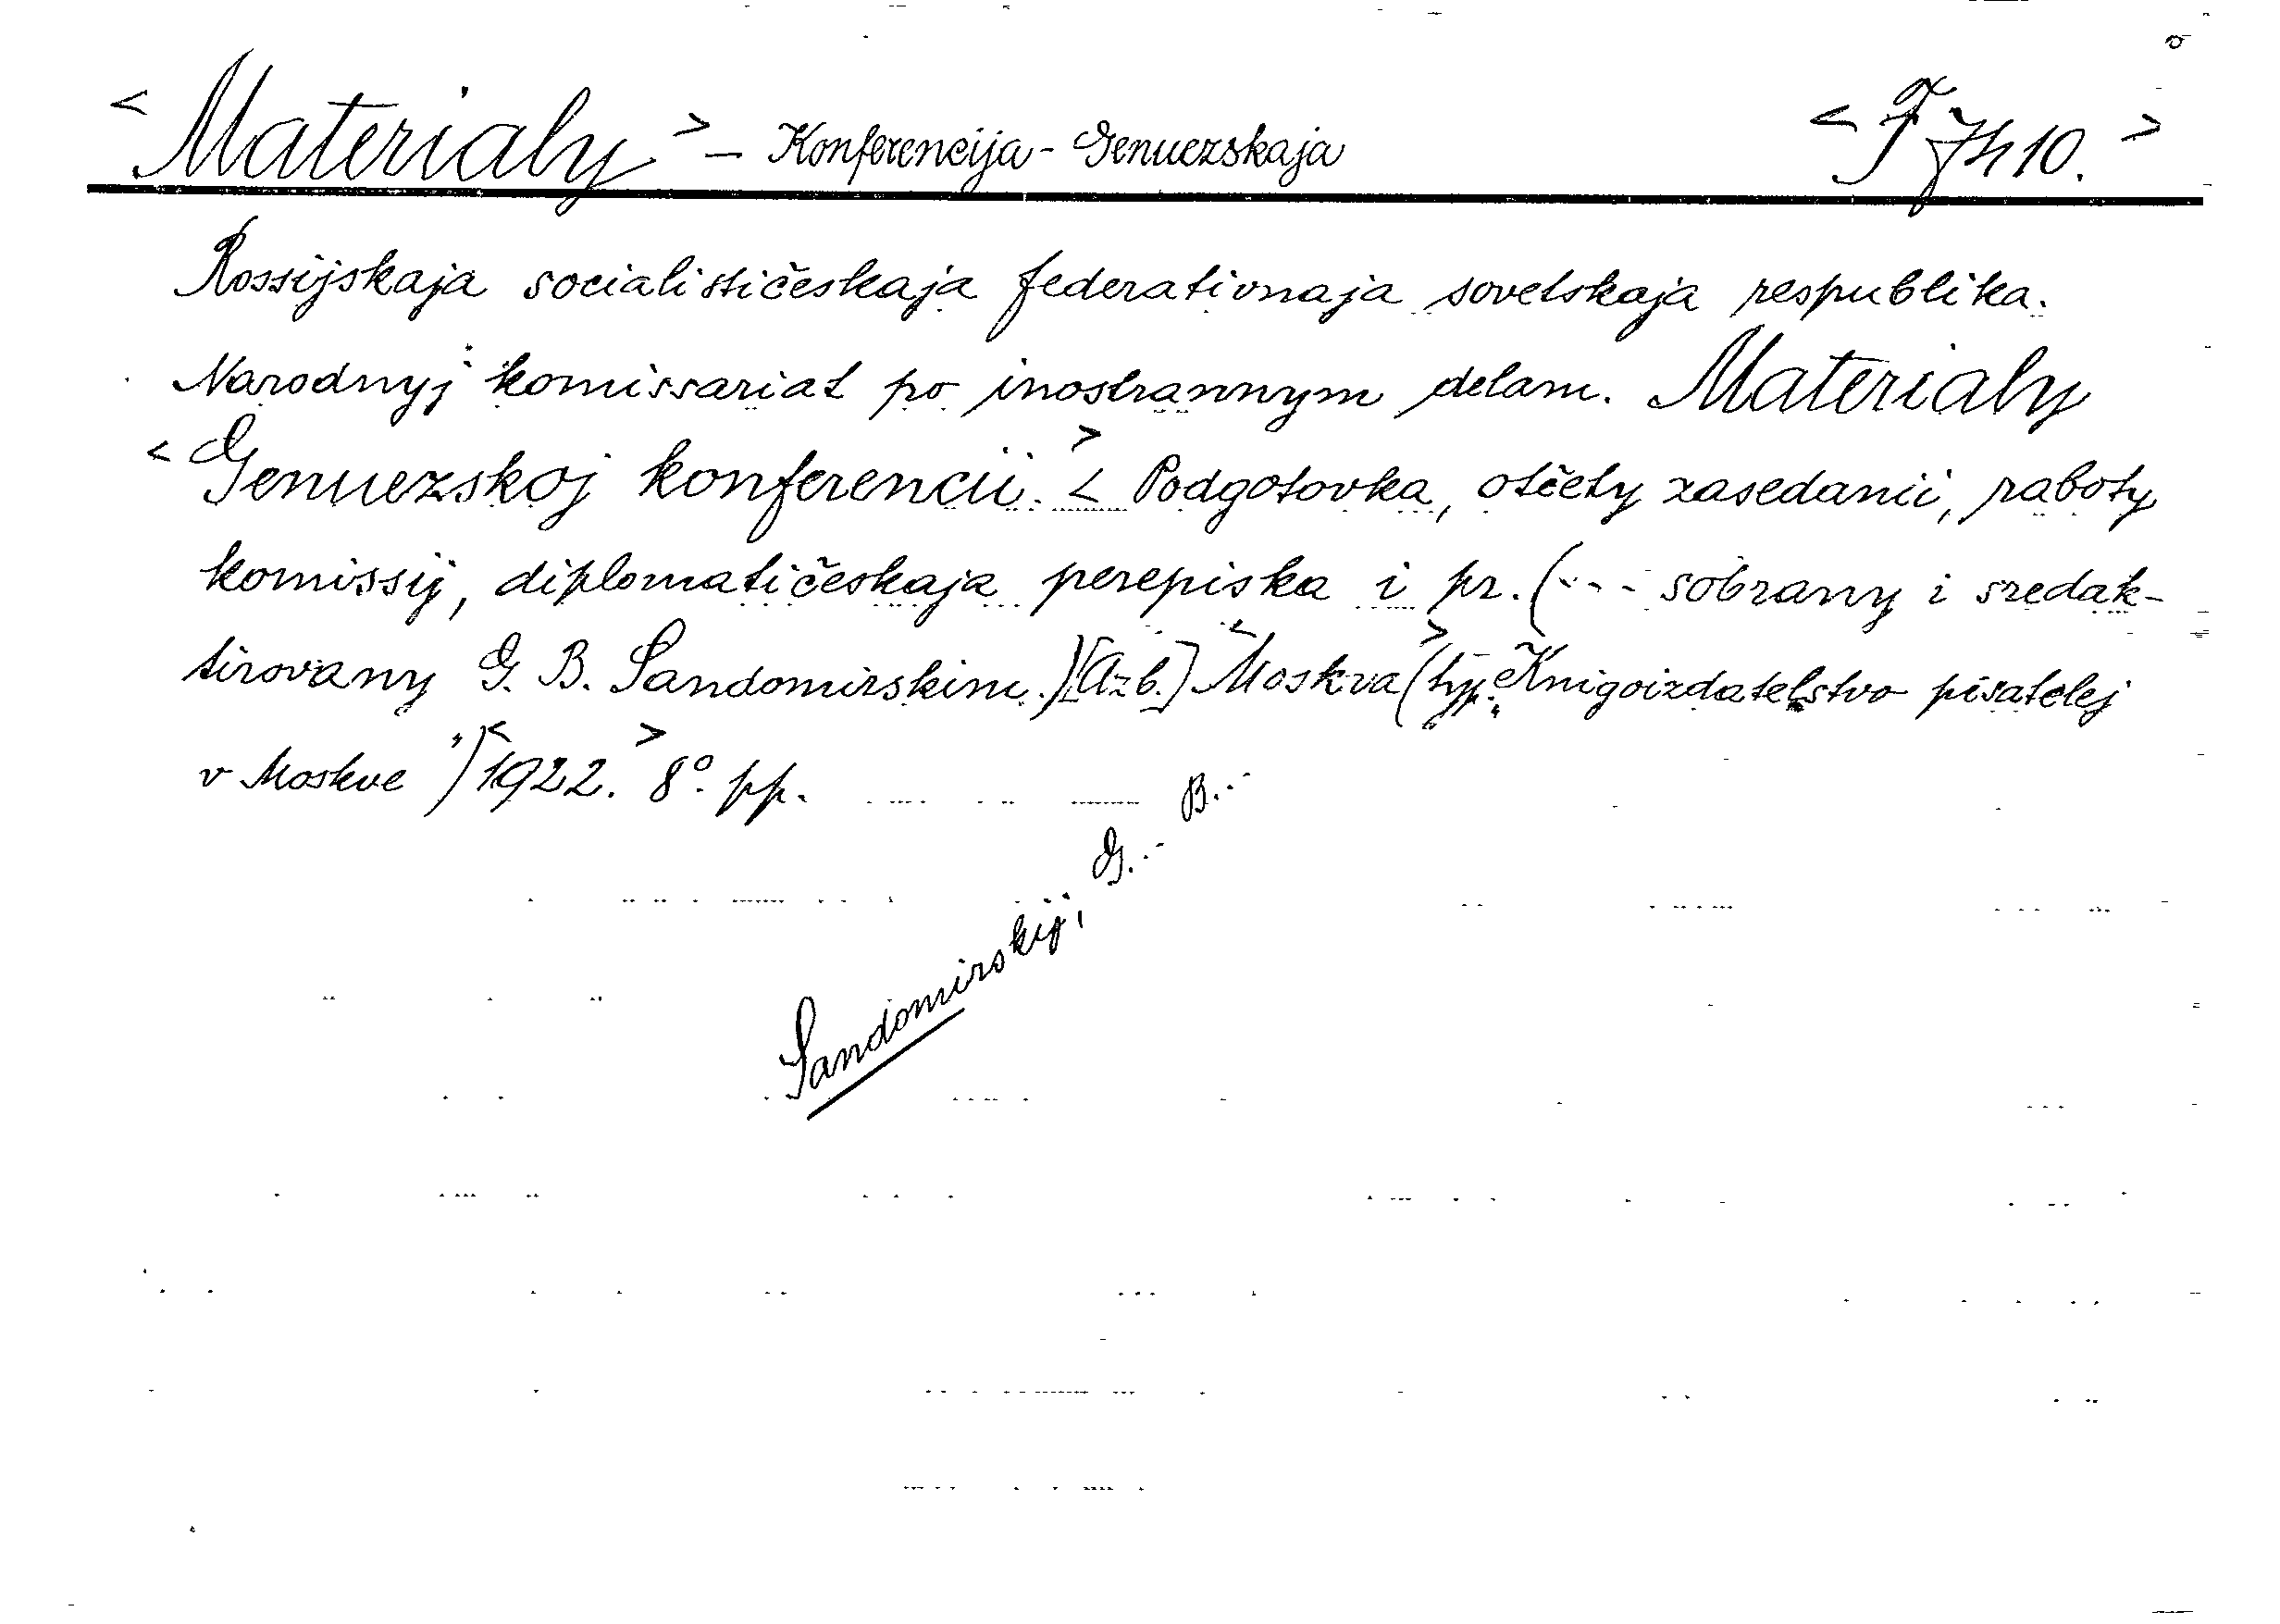 < Materialy > – Konferencija - Genuezskaja
Rossijskaja socialističeskaja federativnaja sovetskaja respublika.
Narodnyj komissariat po inostrannym delam. Materialy
< Genuezskoj konferencii. > < Podgotovka, otčety zasedanii, raboty
komissij, diplomatičeskaja perepiska i pr. (... sobrany i sredak-
tirovany G. B. Sandomirskim.) [Azb.] < Moskva > (typ. „Knigoizdatelstvo pisatelej
v Moskve") < 1922. > 8º. pp.
Sandomirskij, G... B...